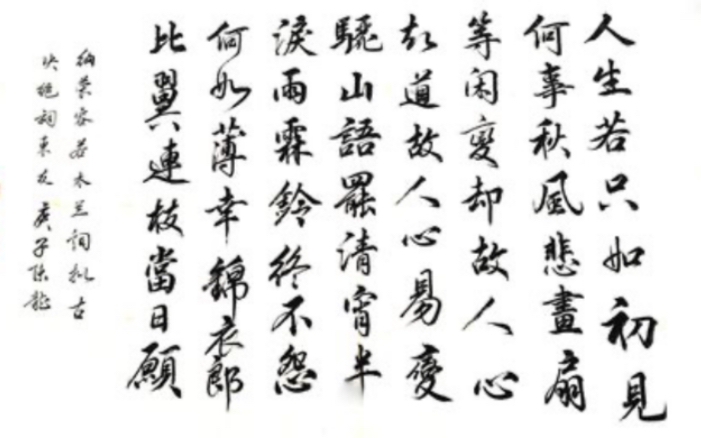 人生若只如初見
何事秋風悲畫扇
等閑變却故人心
却道故人心易變
驪山語罷清宵半
淚雨霖鈴終不怨
何如薄幸錦衣郎
比翼連枝當日願
納蘭容若木蘭詞擬古
决絕詞柬友庚子陈龍